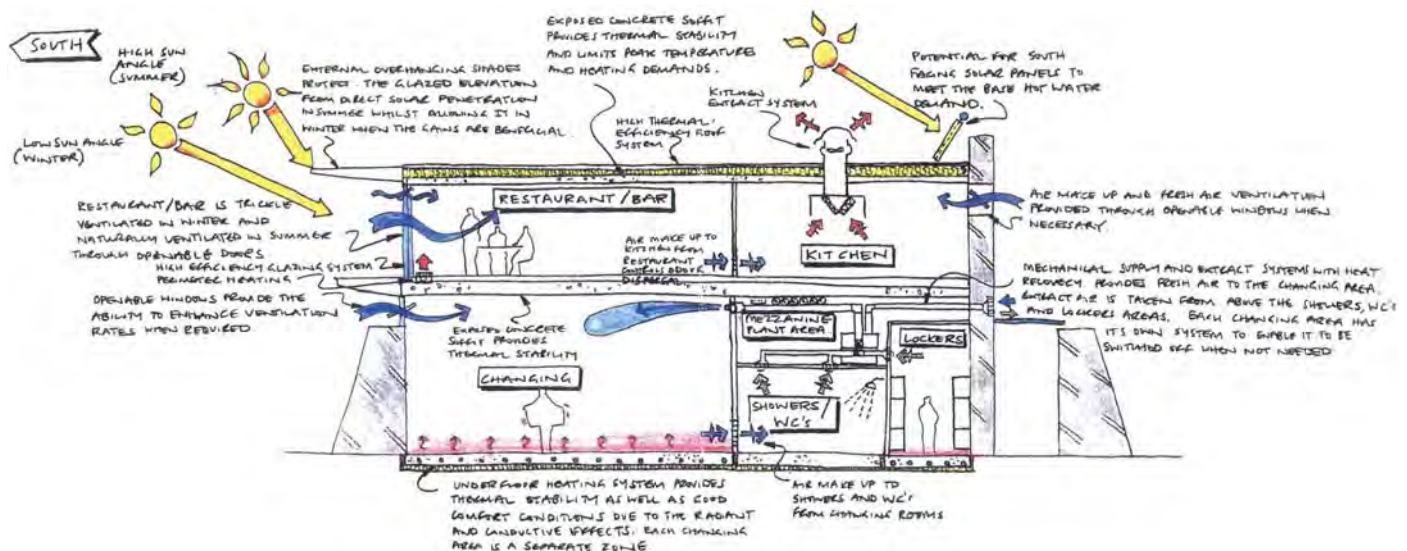 SOUTH
HIGH SUN
ANGLE
(SUMMER)
LOW SUN ANGLE
(WINTER)
EXTERNAL OVERHANGING SHADES
PROTECT THE GLAZED ELEVATION
FROM DIRECT SOLAR PENETRATION
IN SUMMER WHILST ALLOWING IT IN
WINTER WHEN THE GAINS ARE BENEFICIAL.
EXPOSED CONCRETE SOFFIT
PROVIDES THERMAL STABILITY
AND LIMITS PEAK TEMPERATURES
AND HEATING DEMANDS.
HIGH THERMAL
EFFICIENCY ROOF
SYSTEM
KITCHEN
EXTRACT SYSTEM
POTENTIAL FOR SOUTH
FACING SOLAR PANELS TO
MEET THE BASE HOT WATER
DEMAND.
RESTAURANT/BAR IS TRICKLE
VENTILATED IN WINTER AND
NATURALLY VENTILATED IN SUMMER
THROUGH OPENABLE DOORS
HIGH EFFICIENCY GLAZING SYSTEM
PERIMETER HEATING
OPENABLE WINDOWS PROVIDE THE
ABILITY TO ENHANCE VENTILATION
RATES WHEN REQUIRED.
RESTAURANT/BAR
AIR MAKE UP TO
KITCHEN FROM
RESTAURANT
CONTROLS ODOUR
DISPERSAL.
KITCHEN
AIR MAKE UP AND FRESH AIR VENTILATION
PROVIDED THROUGH OPENABLE WINDOWS WHEN
NECESSARY.
MECHANICAL SUPPLY AND EXTRACT SYSTEMS WITH HEAT
RECOVERY PROVIDES FRESH AIR TO THE CHANGING AREA.
EXTRACT AIR IS TAKEN FROM ABOVE THE SHOWERS, WC'S
AND LOCKERS AREAS. EACH CHANGING AREA HAS
IT'S OWN SYSTEM TO ENABLE IT TO BE
SWITCHED OFF WHEN NOT NEEDED
EXPOSED CONCRETE
SOFFIT PROVIDES
THERMAL STABILITY
MEZZANINE
PLANT AREA
LOCKERS
CHANGING
SHOWERS/
WC'S
UNDERFLOOR HEATING SYSTEM PROVIDES
THERMAL STABILITY AS WELL AS GOOD
COMFORT CONDITIONS DUE TO THE RADIANT
AND CONDUCTIVE EFFECTS. EACH CHANGING
AREA IS A SEPARATE ZONE
AIR MAKE UP TO
SHOWERS AND WC'S
FROM CHANGING ROOMS